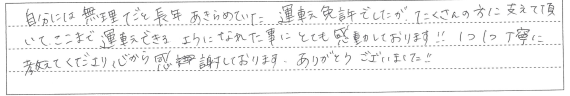 自分には無理だと長年あきらめていた運転免許でしたが、たくさんの方に支えて頂
いて、ここまで運転できるようになれた事にとても感動しております!! 1つ1つ丁寧に
教えてくださり、心から感謝しております。ありがとうございました!!